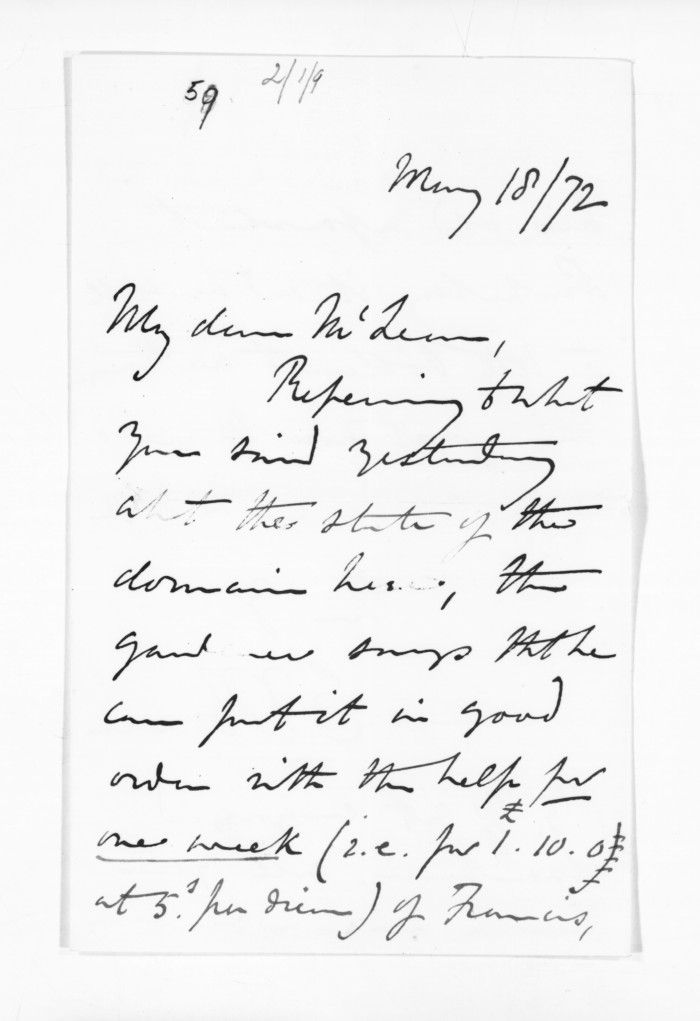 59 2/1/9
May 18/72
My dear McLean,
Referring to what
you said yesterday
abt the state of the
domain here, the
gardener says tht he
can put it in good
order with the help for
one week (i.e. for £1.10.0
at 5s. per diem) of Francis,